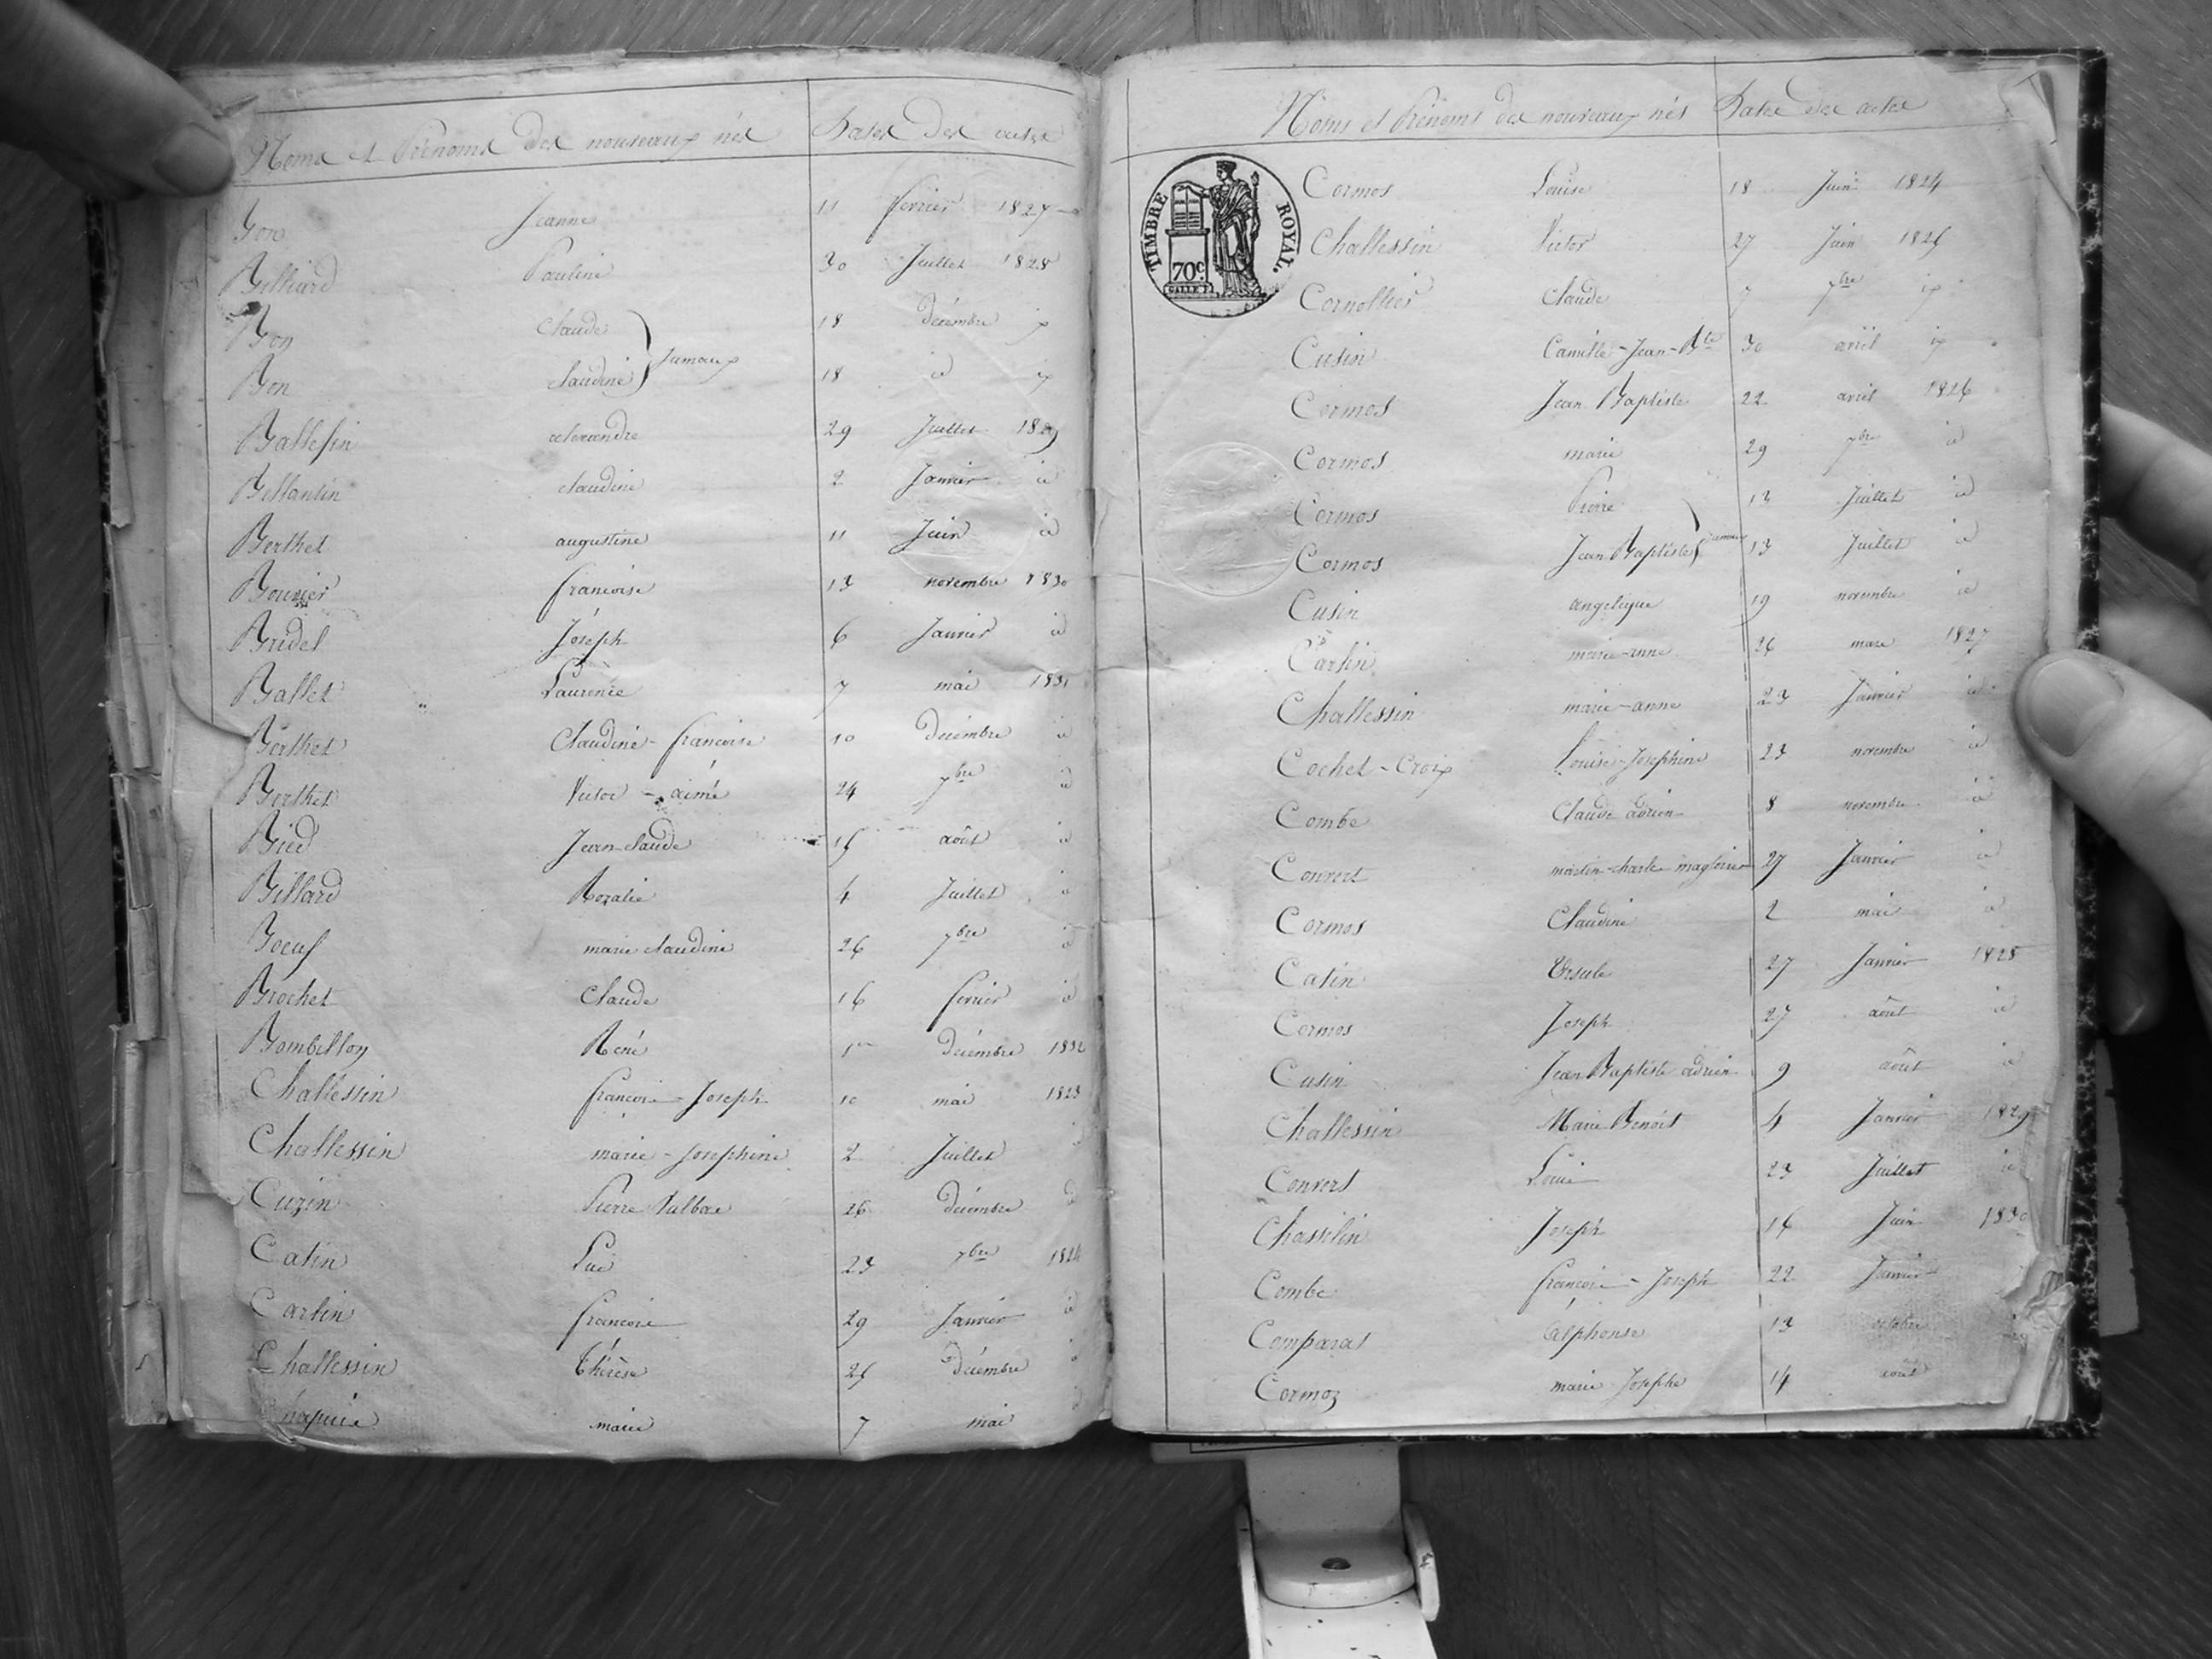 Noms et Prénoms des nouveaux nés Dates des actes
Bon Jeanne 11 février 1827
Billiard Pauline 30 Juillet 1828
Bon claude 18 décembre id
Jumeaux
Bon claudine 18 id id
Ballessin alexandre 29 Juillet 1829
Billantin claudine 2 Janvier id
Berthet augustine 11 Juin id
Bouvier francoise 13 novembre 1830
Bridel Joseph 6 Janvier id
Ballet Laurence 7 mai 1831
Berthet Claudine-francoise 10 décembre id
Berthet Victor-aimé 24 7bre id
Bied Jean-claude 15 août id
Billard Rozalie 4 Juillet id
Boeuf marie claudine 26 7bre id
Brochet Claude 16 février id
Bombillon Réné 1er décembre 1832
Challessin françois-Joseph 10 mai 1823
Challessin marie-Josephine 2 Juillet
Cuzin Pierre 26 décembre id
Catin Luc 23 7bre 1824
Carlin francois 29 Janvier id
Challessin Thérèse 25 décembre
marie 7 mai
Noms et Prénoms des nouveaux nés Dates des actes
TIMBRE ROYAL.
70c.
Cormos Louise 18 Juin 1824
Challessin Victor 27 Juin 1825
Cornollier Claude 7 7bre id
Cusin Camille-Jean-Bte 30 avril id
Cormos Jean Baptiste 22 avril 1826
Cormos marie 29 7bre id
Cormos Pierre 13 Juillet id
Jumeaux
Cormos Jean Baptiste 13 Juillet id
Cusin angelique 19 novembre id
Carlin marie-anne 26 mars 1827
Challessin marie-anne 23 Janvier id
Cochet-Croix Louise-Josephine 23 novembre id
Combe Claude adrien 8 novembre id
Convert martin-charle 27 Janvier id
Cormos Claudine 2 mai id
Catin Ursule 27 Janvier 1828
Cormos Joseph 27 août id
Cusin Jean Baptiste adrien 9 août id
Challessin Marie Benoit 4 Janvier 1829
Convert Louis 23 Juillet id
Chassilin Joseph 16 Juin 1830
Combe françois-Joseph 22 Janvier
Comparat alphonse 13 octobre
Cormoz marie Josephe 14 août